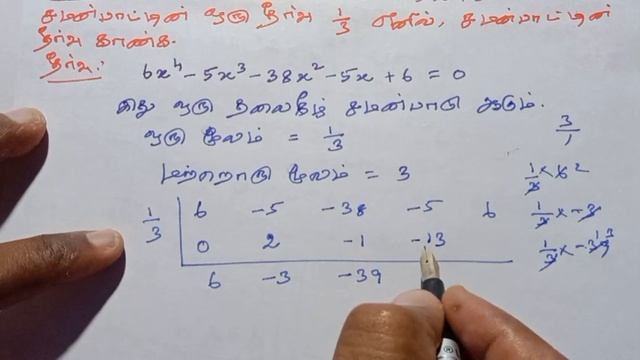 சமன்பாட்டின் ஒரு தீர்வு 1/3 எனில், சமன்பாட்டின்
தீர்வு காண்க.
தீர்வு:
6x⁴ - 5x³ - 38x² - 5x + 6 = 0
இது ஒரு தலைகீழ் சமன்பாடு ஆகும்.
ஒரு மூலம் = 1/3
3/1
மற்றொரு மூலம் = 3
1/3 × 6 2
1/3 | 6 -5 -38 -5 6
1/3 × -3
0 2 -1 -13
1/3 × -39 13
6 -3 -39